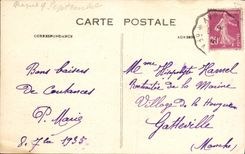 CARTE POSTALE
CORRESPONDANCE
ADRESSE
Bons baisers
de Coutances
P. Marie
8 7bre 1935
Mme Hippolyte Hamel
Rentière de la Marine
Village de la Hougue
Gatteville
(Manche)